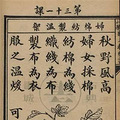 第三十一課
秋野風高
婦女採棉
紡棉為線
織線為布
製布為衣
服之溫煖